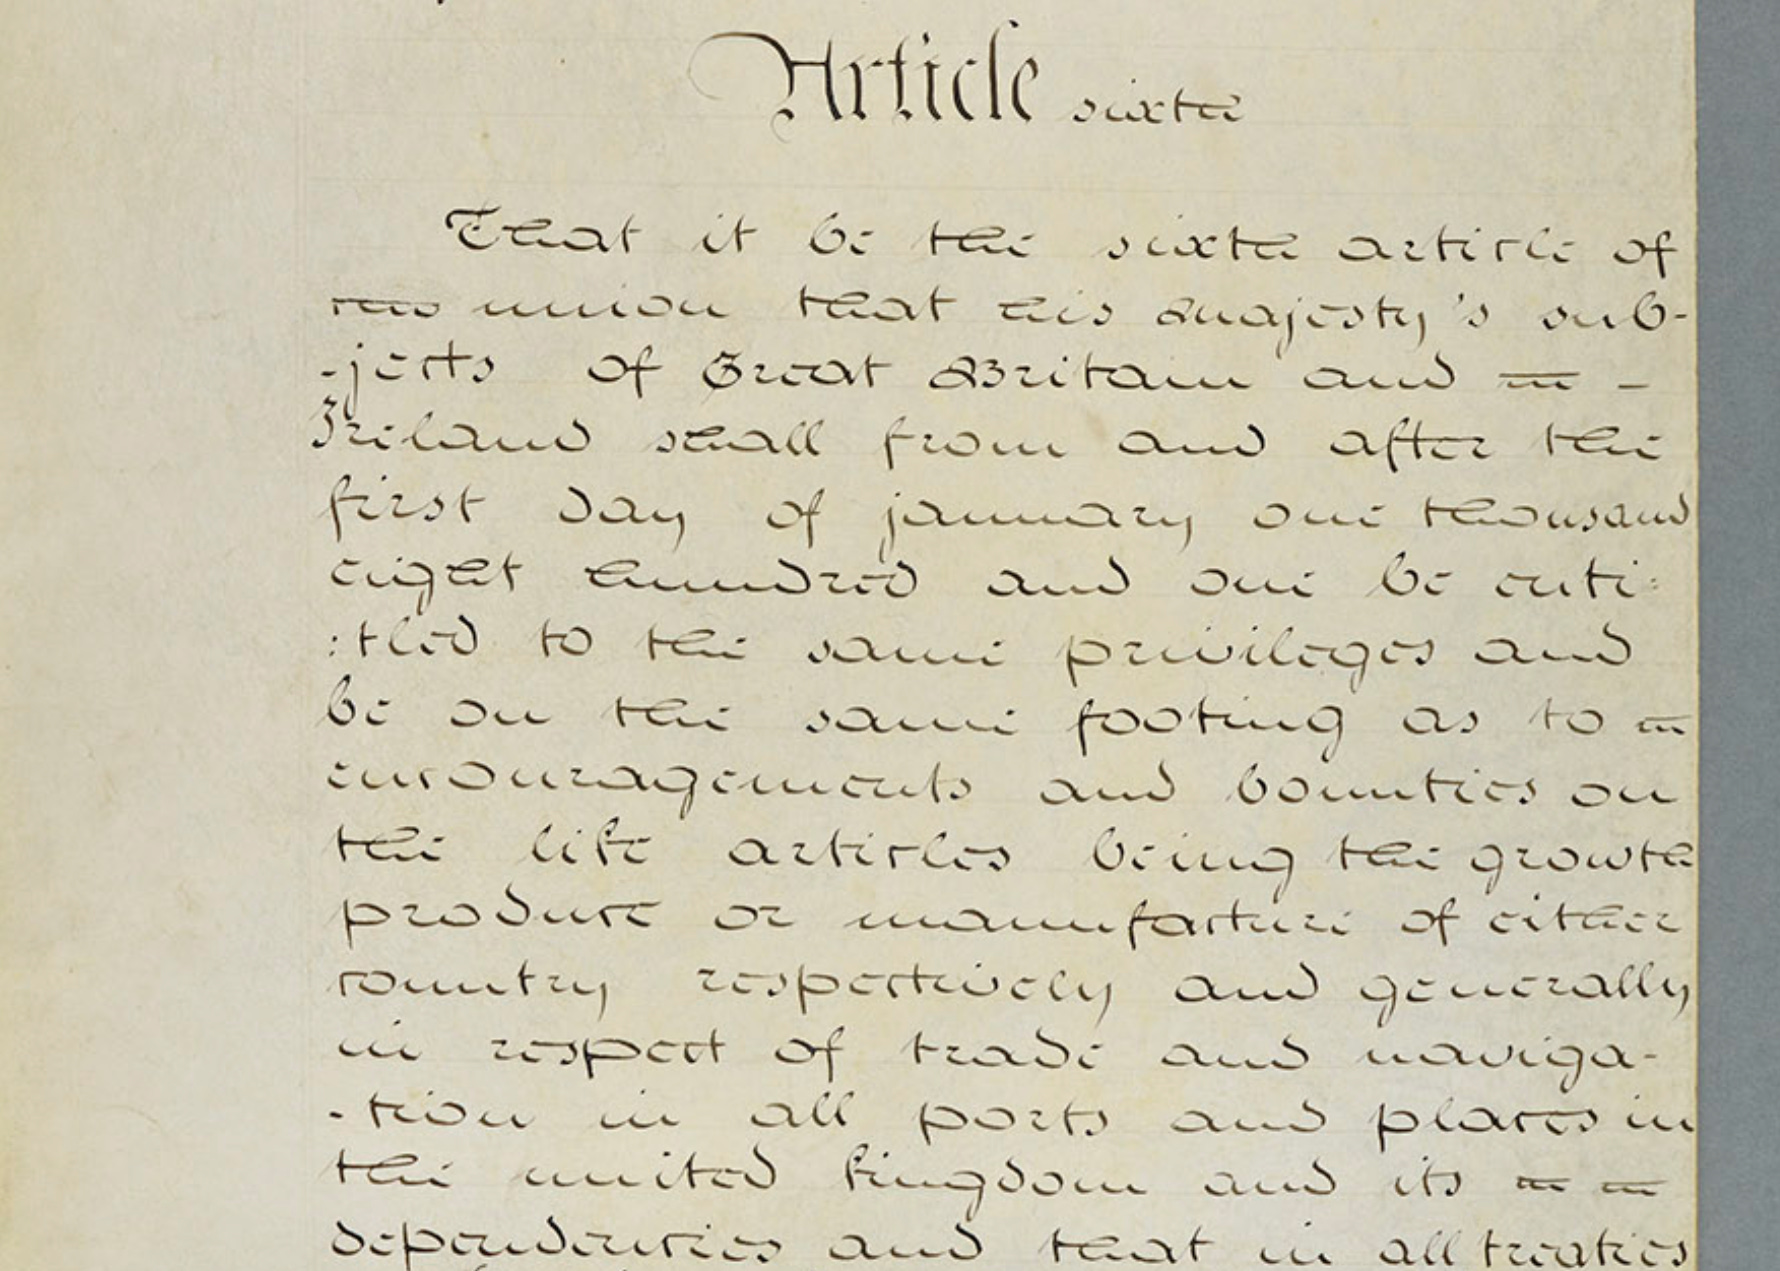 Article sixth
That it be the sixth article of
union that his Majesty's sub-
-jects of Great Britain and
Ireland shall from and after the
first day of january one thousand
eight hundred and one be enti:
:tled to the same privileges and
be on the same footing as to
encouragements and bounties on
the like articles being the growth
produce or manufacture of either
country respectively and generally
in respect of trade and naviga-
-tion in all ports and places in
the united kingdom and its
dependencies and that in all treaties